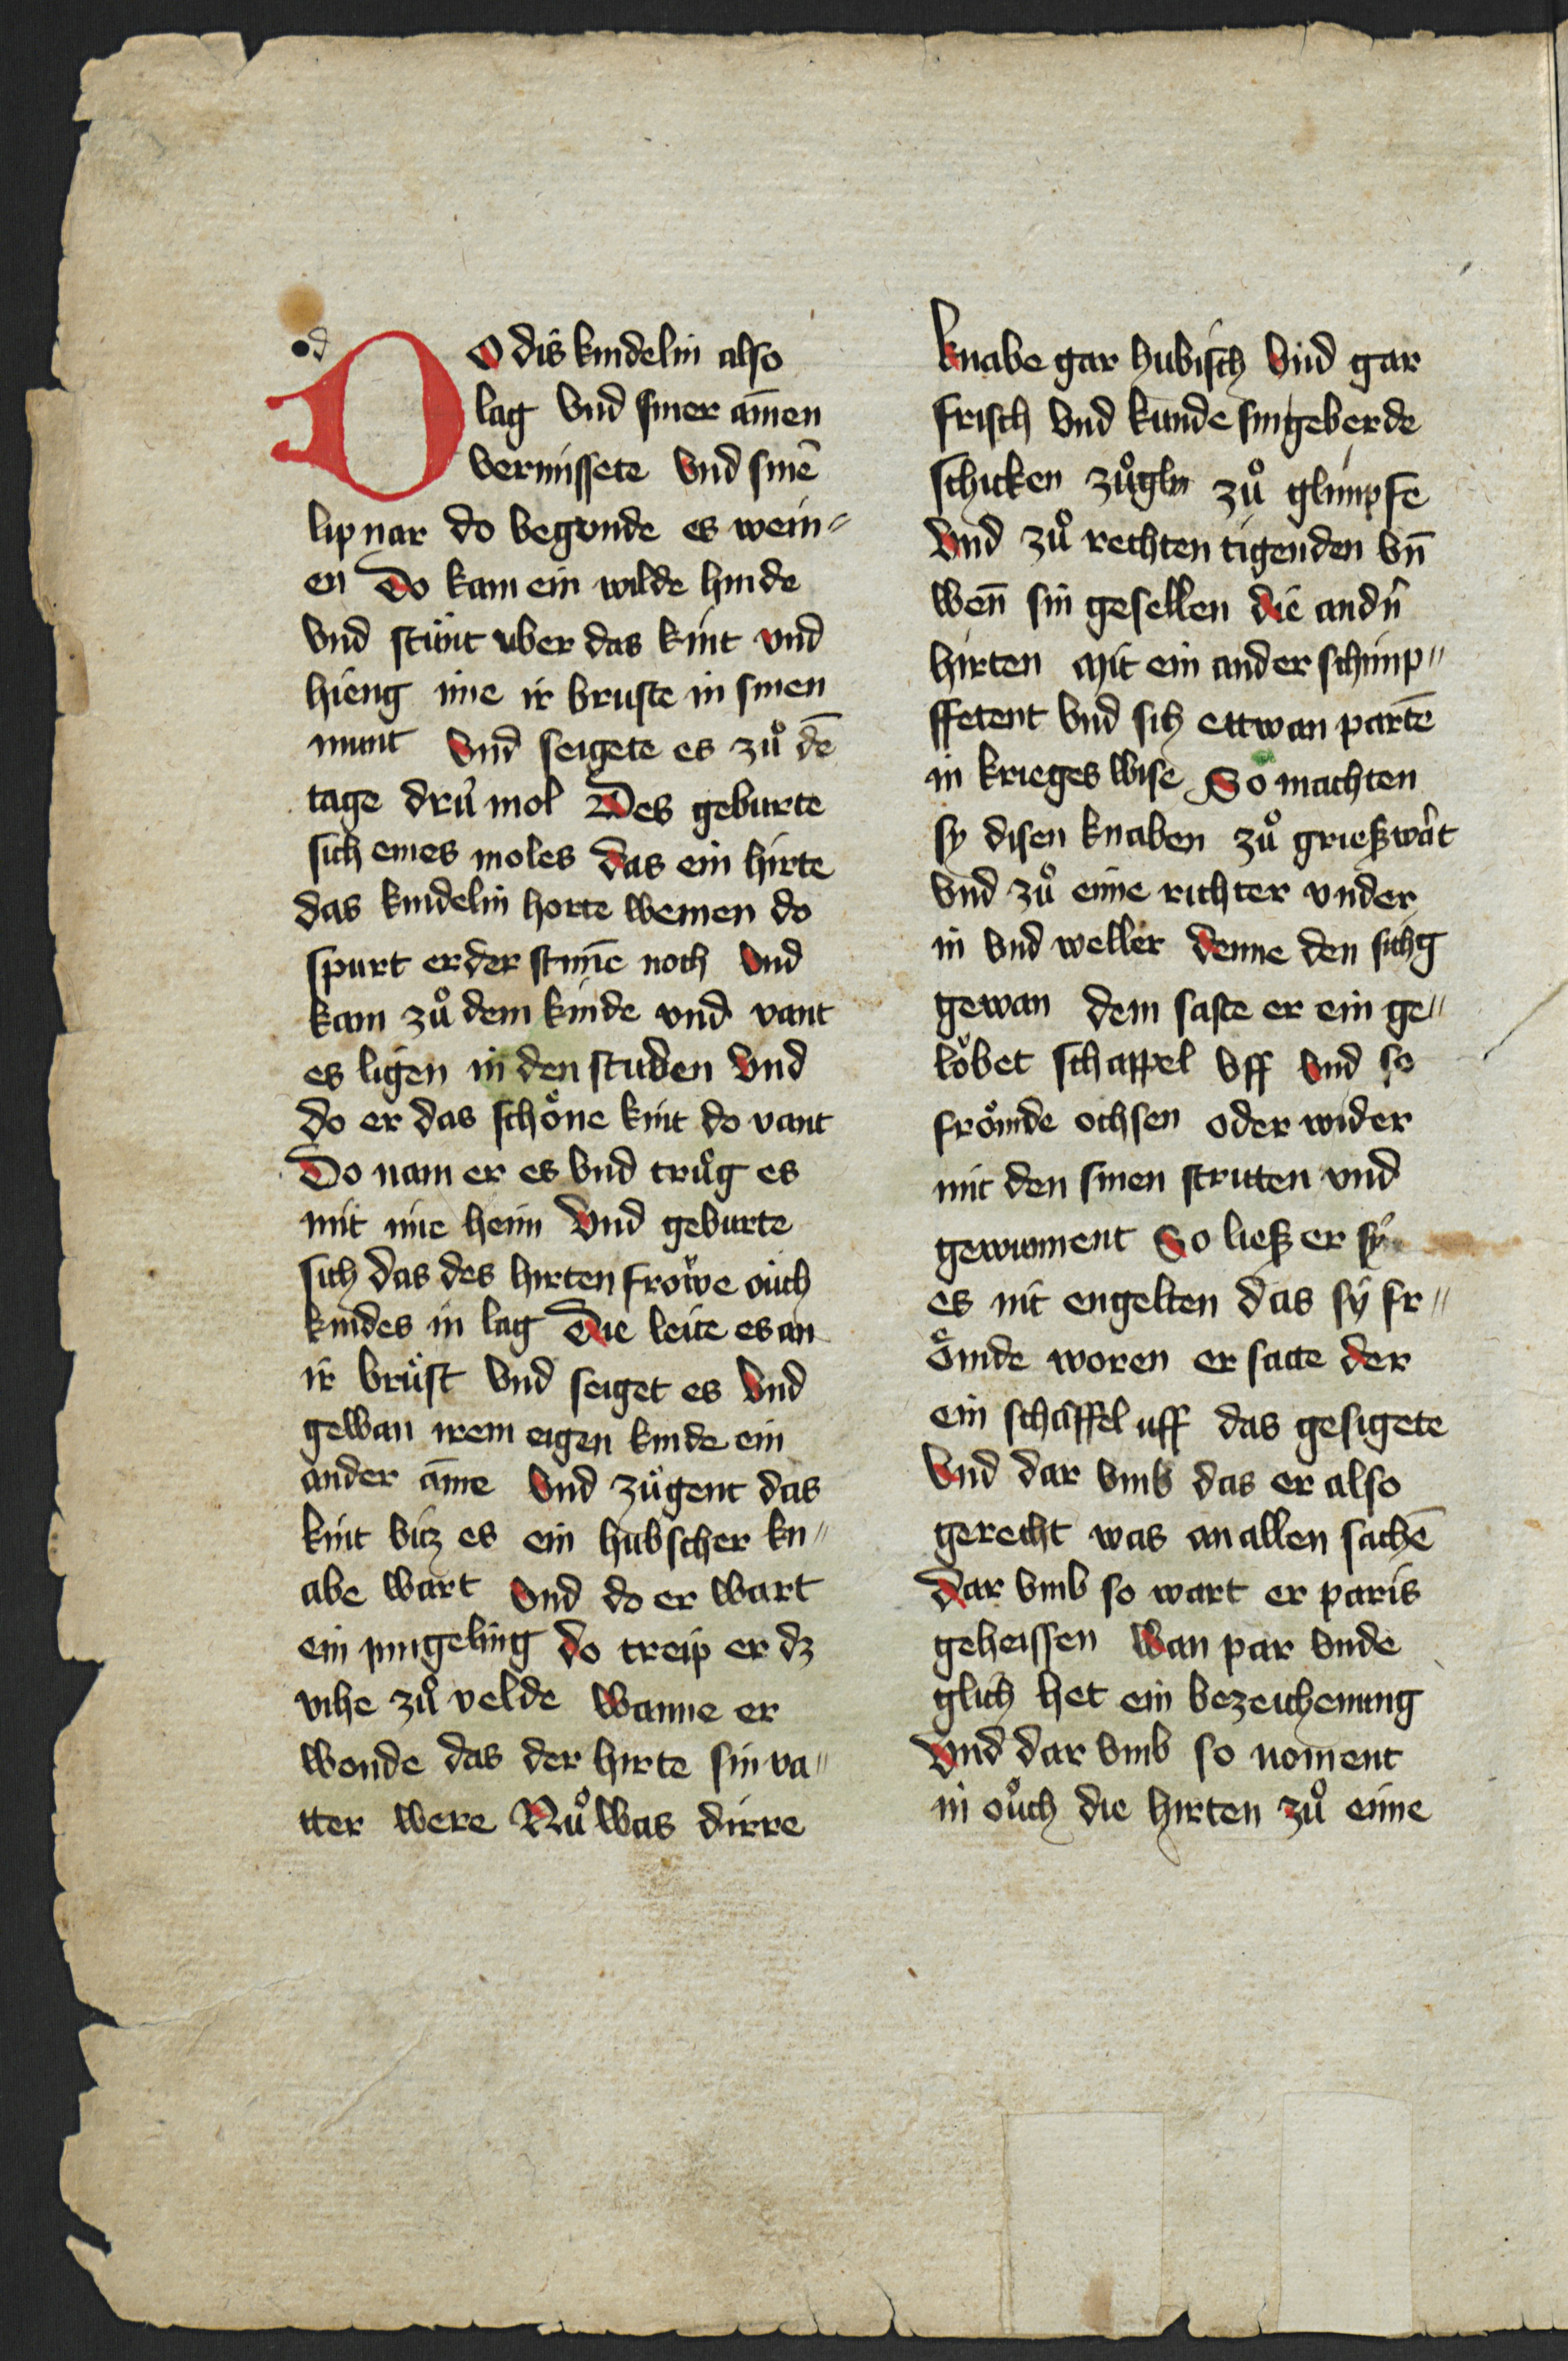 d
DO dis kindelin also
lag vnd siner am̄en
vermissete vnd sinē
lipnar do begonde es wein⸗
en Do kam ein wilde hinde
vnd stůnt uber das kint vnd
hieng ime ir bruste in sinen
munt vnd seigete es zů dē
tage drú mol Des geburte
sich eines moles das ein hirte
das kindelin horte weinen do
spurt er der stim̄e noch vnd
kam zů dem kinde vnd vant
es ligen in den studen vnd
do er das schöne kint do vant
Do nam er es vnd trůg es
mit ime heim vnd geburte
sich das des hirten frowe ouch
kindes in lag Die leite es an
ir brust vnd seiget es vnd
gewan irem eigen kinde ein
ander am̄e vnd zugent das
kint bitz es ein hubscher kn⸗
abe wart vnd do er wart
ein jungeling do treip er dz
vihe zů velde wanne er
wonde das der hirte sin va⸗
tter were Nů was dirre
knabe gar hubisch vnd gar
frisch vnd kunde sin geberde
schicken zů glin zů glimpfe
vnd zů rechten tigenden vn̄
wen̄ sin gesellen die andn̑
hirten mit ein ander schimp⸗
ffetent vnd sich ettwan partē
in krieges wise So machten
sy disen knaben zů grieszwa̍t
vnd zů eime richter vnder
in vnd weller denne den sichg
gewan dem saste er ein ge⸗
löbet schappel vff vnd so
frömde ochsen oder wider
mit den sinen stritten vnd
gewunnent So liesz er sy
es nit engelten das sy fr⸗
ömde woren er satte der
ein schappel uff das gesigete
vnd dar vmb das er also
gerecht was an allen sachē
dar vmb so wart er paris
geheissen wan par vnde
glich het ein bezeichenung
vnd dar vmb so noment
in ouch die hirten zů eime